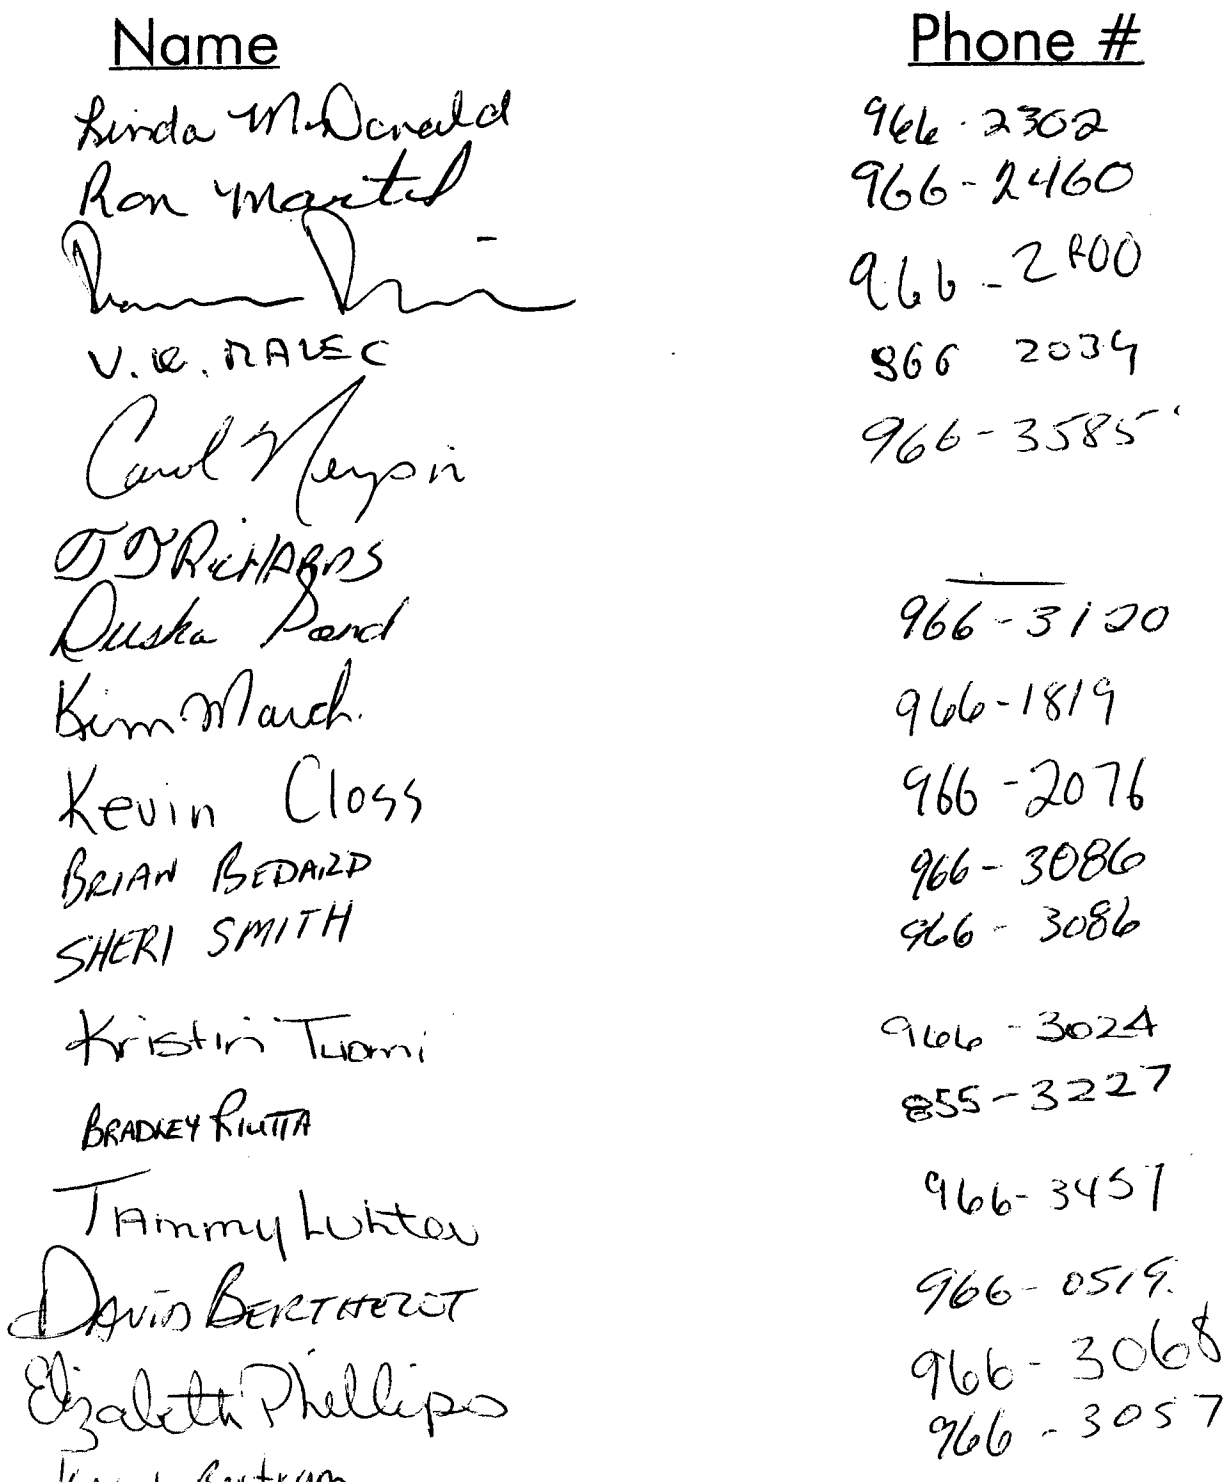 Name Phone #
Linda McDonald 966-2302
Ron Martel 966-2460
966-2800
V. K. MALEC 966 2034
Carol 966-3585
RICHARDS
Duska Pond 966-3120
Kim March. 966-1819
Kevin Closs 966-2076
BRIAN BEDARD 966-3086
SHERI SMITH 966-3086
Kristin Tuomi 966-3024
BRADLEY RIUTTA 855-3227
TAmmy Luhta 966-3457
DAVID BERTHELOT 966-0519.
Elizabeth Phillips 966-3068
Bertram 966-3057